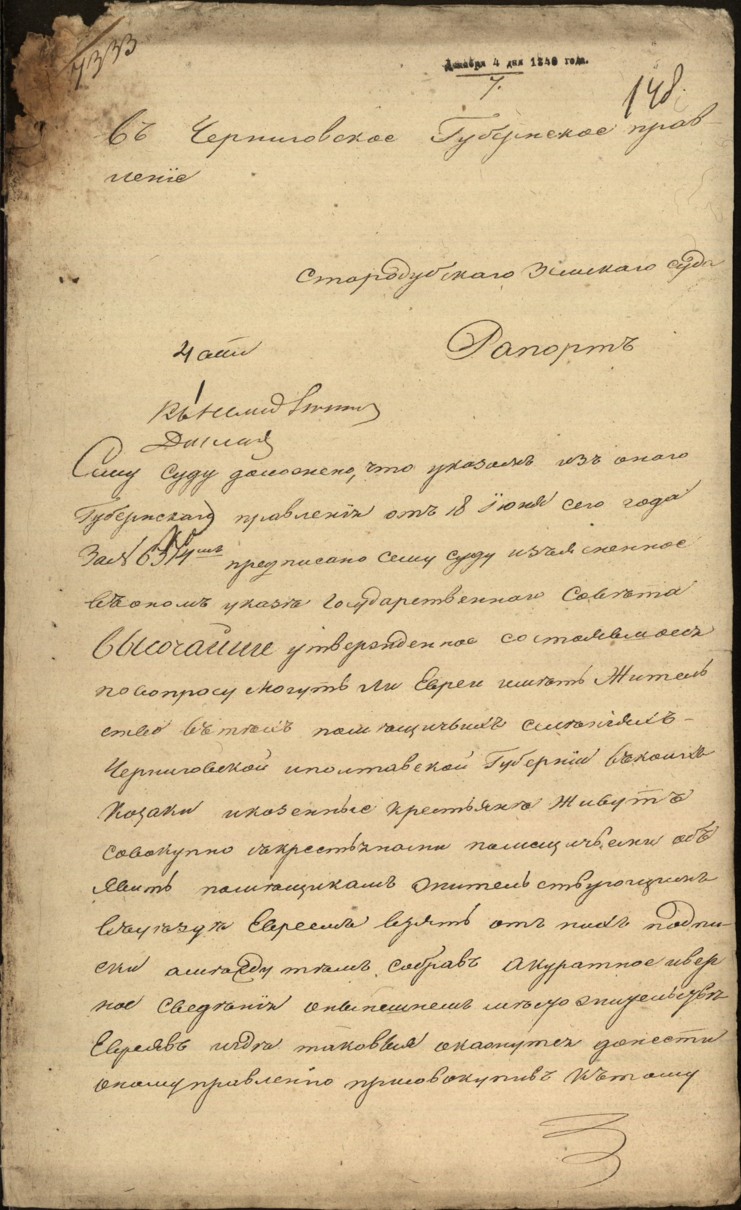 7333
Декабря 4 дня 1840 года.
7.
148.
Въ Черниговское Губернское прав-
леніе
Стародубскаго Земскаго суда
Рапортъ
Сему суду должено, что указомъ изъ оного
Губернскаго правленія отъ 18 Іюня сего года
За № предписано сему суду изъясненное
въ ономъ указѣ Государственнаго Совѣта
Высочайше утвержденное состоявшоесь
по вопросу могутъ ли Евреи имѣть Житель
ство въ тѣхъ помѣщичьихъ селѣніяхъ-
Черниговской и полтавской Губерніи въ коихъ
козаки и казенные крестьянѣ живутъ
совокупно съ крестьянами помещичьими объ
явить помѣщикамъ жительствующимъ
въ уѣздѣ Евреемъ взять отъ нихъ подпи-
ски а между тѣмъ собравъ акуратное и вер
ное сведѣнія о нынешнемъ мѣсто жительствѣ
Евреявъ и гдѣ таковыя окажутся донести
оному правленію присовокупивъ къ тому